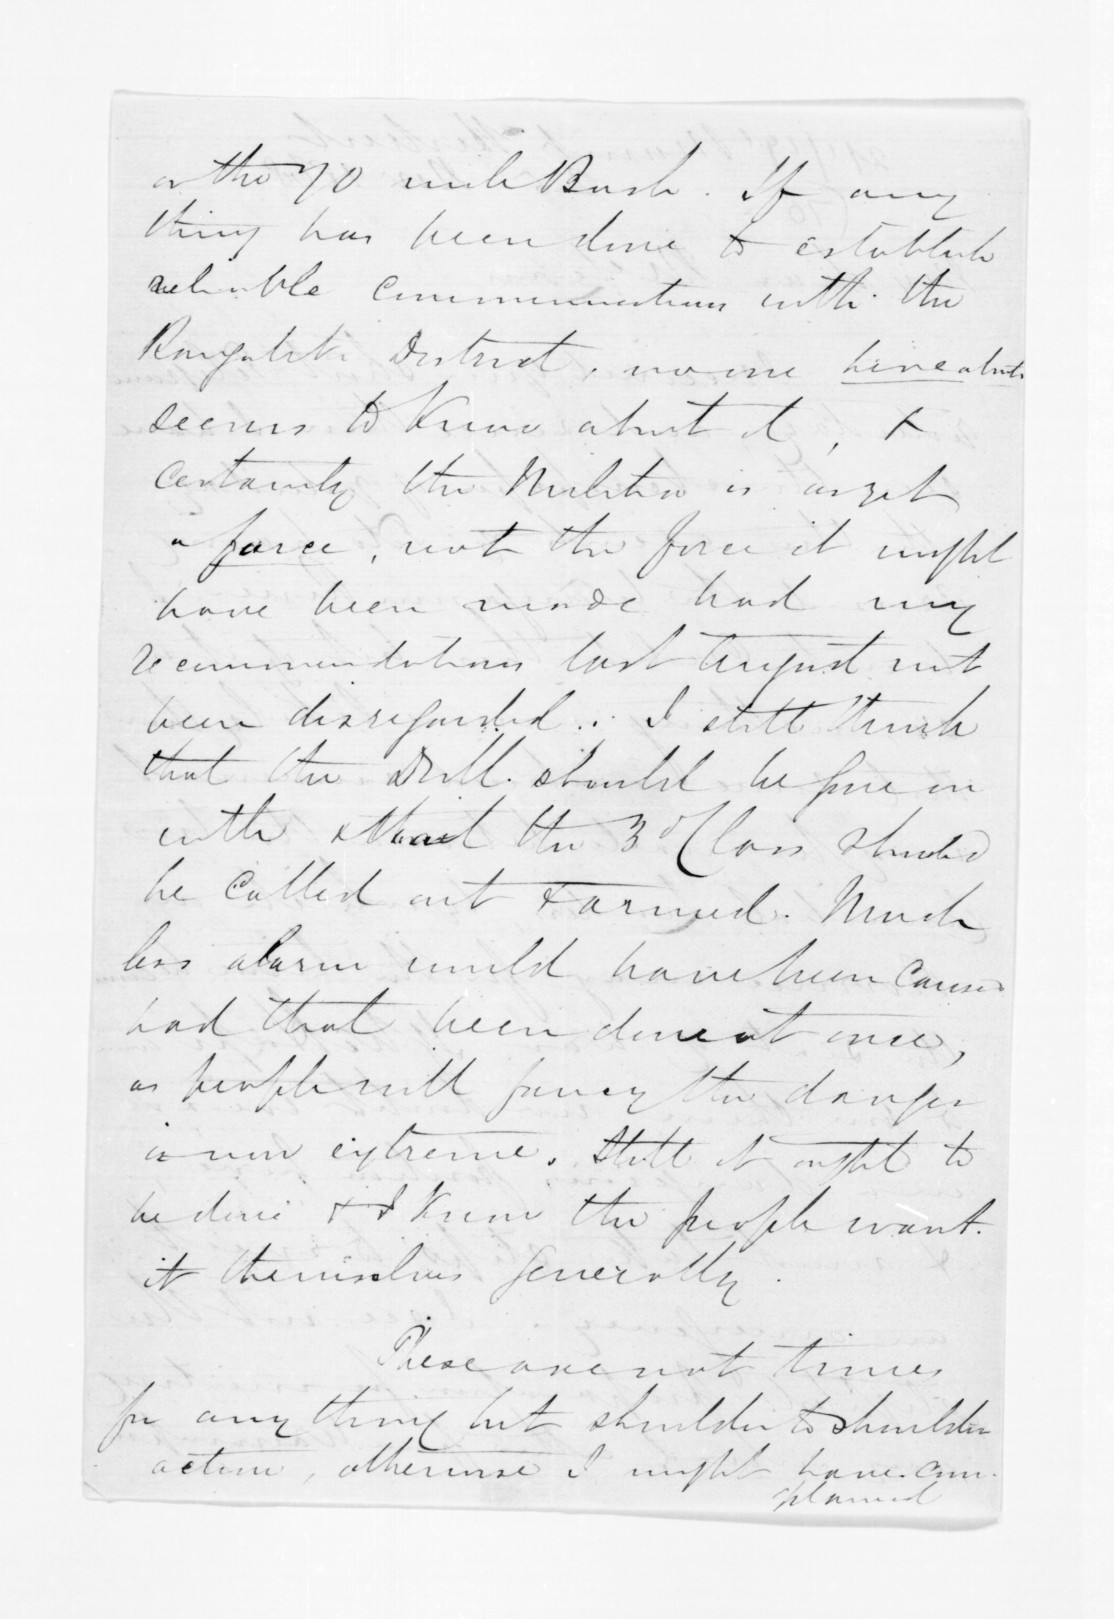 or the 70 mile Bush. If any
thing has been done to establish
reliable communications with the
Rangitiki District, no one hereabouts
seems to know about it, &
certainly the Militia is as yet
a farce, not the force it might
have been made had my
recommendations last August not
been disregarded. I still think
that the Drill should be gone on
with & that the 3d Class should
be called out & armed. Much
less alarm would have been caused
had that been done at once,
as people will fancy the danger
is now extreme. Still it ought to
be done & I know the people want
it themselves generally.
These are not times
for any thing but shoulder to shoulder
action, otherwise I might have com-
plained